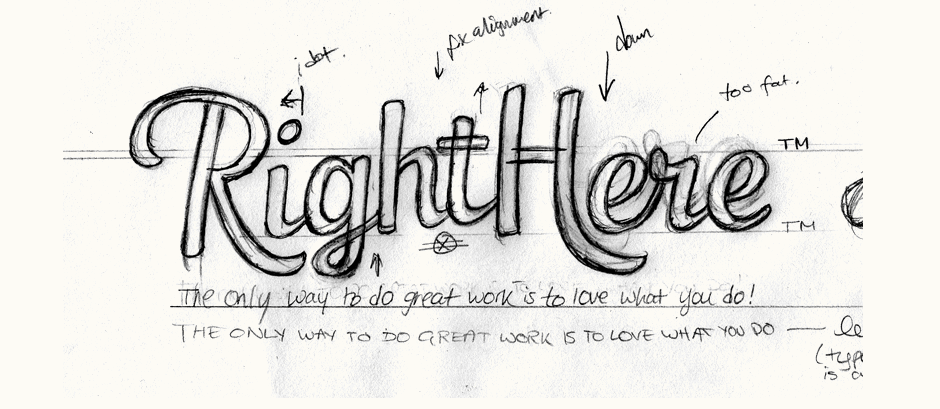 fix alignment.
down
i dot.
too fat.
RightHere
TM
TM
The only way to do great work is to love what you do!
THE ONLY WAY TO DO GREAT WORK IS TO LOVE WHAT YOU DO —
is